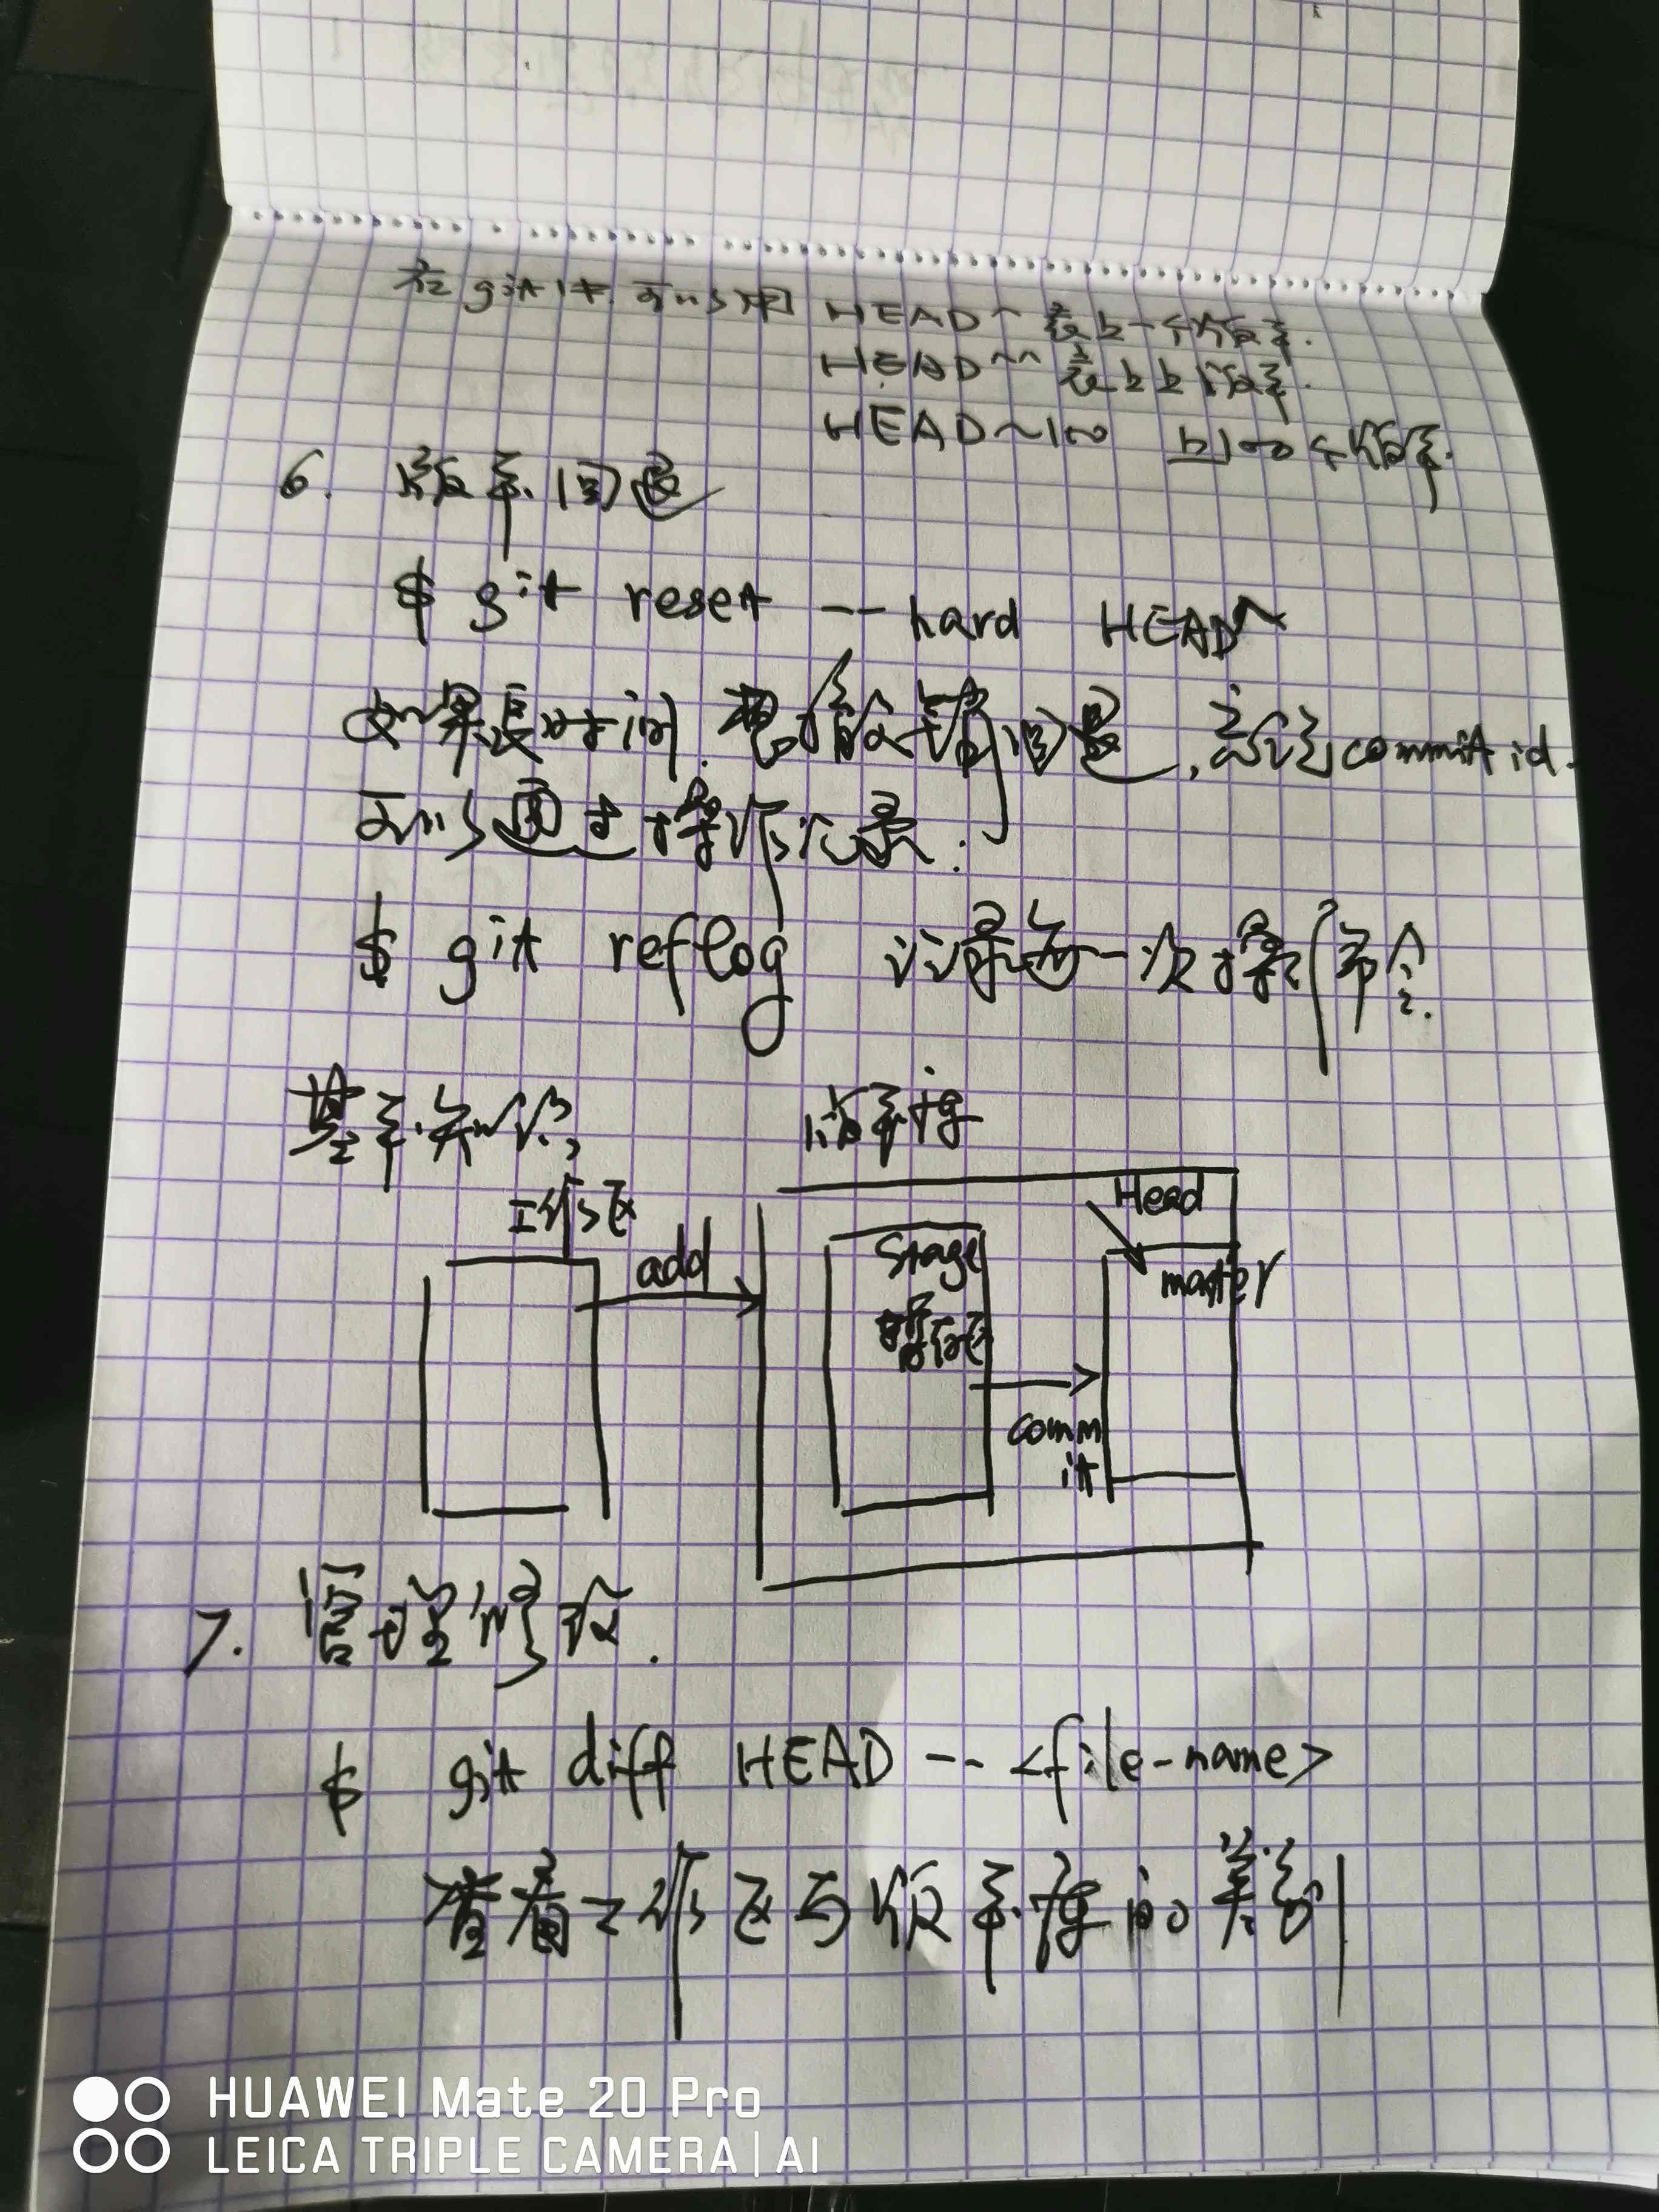 在git中,可以用 HEAD^ 表上一个版本.
HEAD^^ 表上上版本.
HEAD~100 上100个版本.
6. 版本回退
$ git reset --hard HEAD^
如果长时间.想版本回退,忘记commit id.
可以通过操作记录:
$ git reflog 记录每一次操作命令.
基本知识, 版本库
工作区
add
Stage
暂存区
commit
Head
master
7. 管理修改.
$ git diff HEAD -- <file-name>
查看工作区与版本库的差别
HUAWEI Mate 20 Pro
LEICA TRIPLE CAMERA | AI